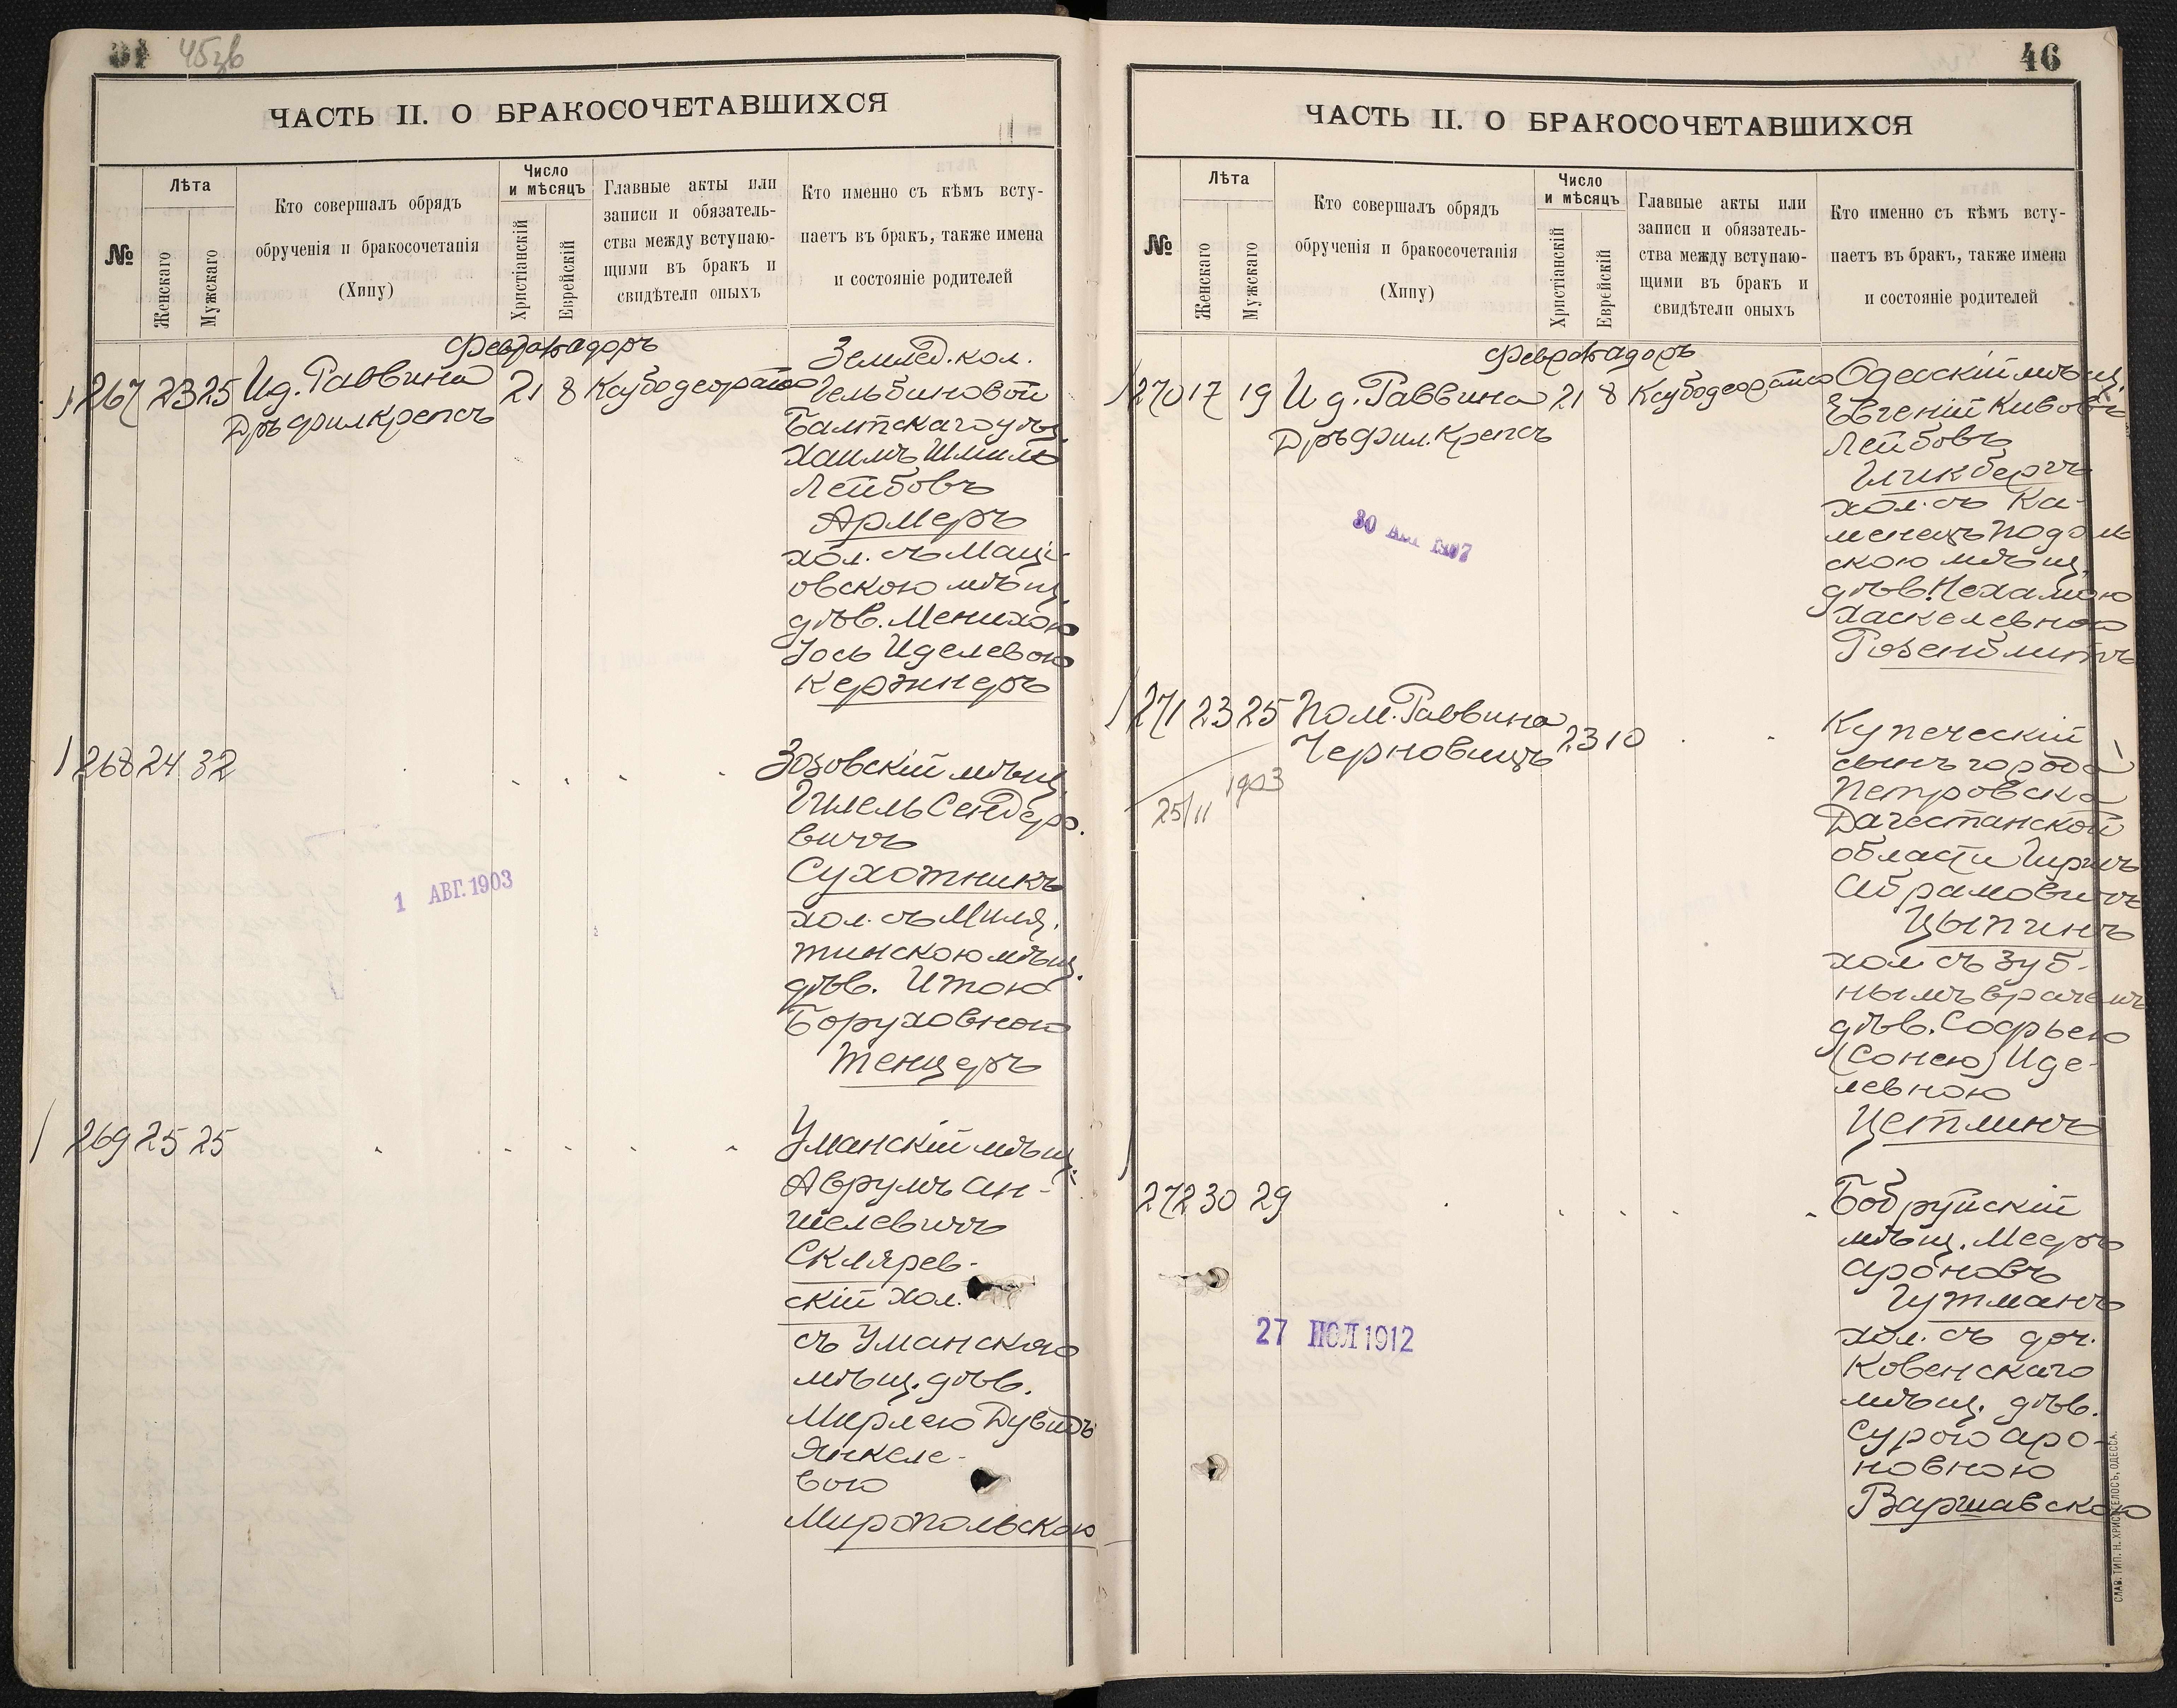 45зв
ЧАСТЬ II. О БРАКОСОЧЕТАВШИХСЯ
№
Лѣта
Женскаго
Мужскаго
Кто совершалъ обрядъ
обрученія и бракосочетанія
(Хипу)
Число
и мѣсяцъ
Христіанскій
Еврейскій
Главные акты или
записи и обязатель-
ства между вступаю-
щими въ бракъ и
свидѣтели оныхъ
Кто именно съ кѣмъ всту-
паетъ въ бракъ, также имена
и состояніе родителей
267 23 25 Ид. Раввина 21 8
Дръ фил Крепсъ
Землед. кол.
Гельбиновой
Балтскаго уѣз.
Хаимъ Шмиль
Лейбовъ
Армеръ
хол. съ Маці-
овскою мѣщ.
дѣв. Менихою
Іось Иделевою
Кержнеръ
268 24 32
Зозовскій мѣщ.
Гилель Сендеро-
вичъ
Сухотникъ
хол. съ Миля-
тинскою мѣщ.
дѣв. Итою
Боруховною
Тенцеръ
1 АВГ. 1903
269 25 25
Уманскій мѣщ.
Аврумъ Ан-
шелевичъ
Скляревскій хол.
съ Уманскою
мѣщ. дѣв.
Мирлею Дувидъ
Янкеле-
вою
Миропольскою
46
ЧАСТЬ II. О БРАКОСОЧЕТАВШИХСЯ
№
Лѣта
Женскаго
Мужскаго
Кто совершалъ обрядъ
обрученія и бракосочетанія
(Хипу)
Число
и мѣсяцъ
Христіанскій
Еврейскій
Главные акты или
записи и обязатель-
ства между вступаю-
щими въ бракъ и
свидѣтели оныхъ
Кто именно съ кѣмъ всту-
паетъ въ бракъ, также имена
и состояніе родителей
270 17 19 И д. Раввина 21 8
Дръ Фил. Крепсъ
Одесскій мѣщ.
Евгеній Кивовъ
Лейбовъ
Гликбергъ
хол. съ Ка-
менецъ Подоль
скою мѣщ.
дѣв. Нехамою
Хаскелевною
Розенблитъ
271 23 25 Пом. Раввина 23 10
Черновицъ
25/11 1903
Купеческій
сынъ города
Петровска
Дагестанской
области Гиршъ
Абрамовичъ
Цыпинъ
хол съ зуб-
нымъ врачемъ
дѣв. Софьею
(Сонею) Иде-
левною
Цетлинъ
272 30 29
27 ІЮЛ 1912
Бобруйскій
мѣщ. Мееръ
Ароновъ
Гутманъ
хол. съ доч.
Ковенскаго
мѣщ. дѣв.
Сурою Аро-
новною
Варшавскою
СЛАВ. ТИП. Н. ХРИСОГЕЛОСЪ, ОДЕССА.